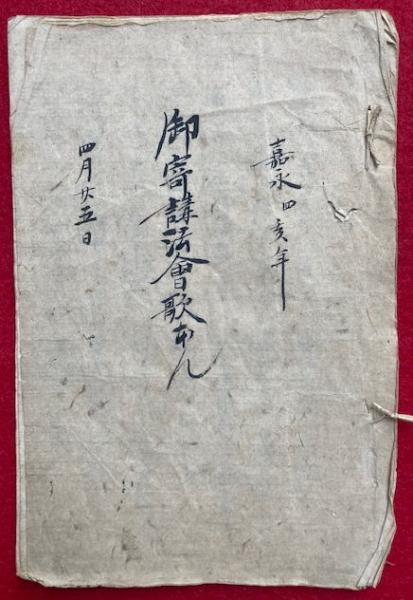 嘉永四亥年
御寄講法會歌本ん
四月廿五日